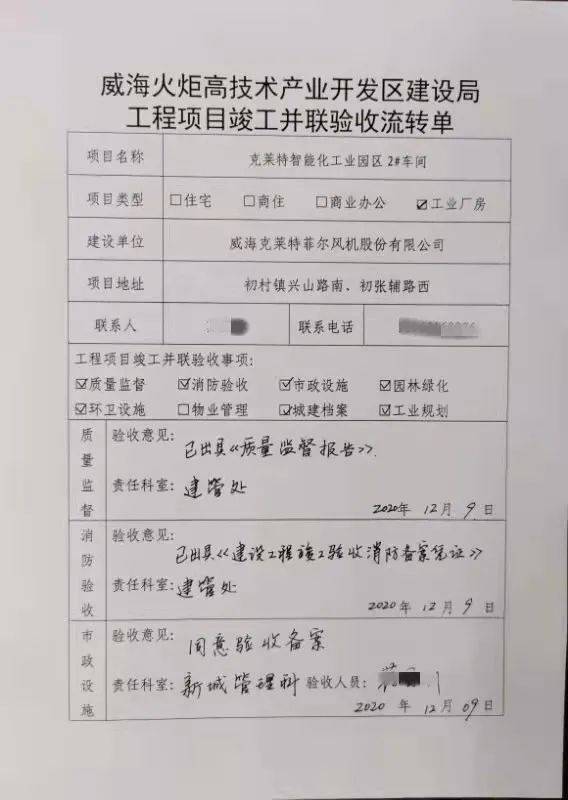 威海火炬高技术产业开发区建设局
工程项目竣工并联验收流转单
项目名称 克莱特智能化工业园区 2#车间
项目类型 □住宅 □商住 □商业办公 ☑工业厂房
建设单位 威海克莱特菲尔风机股份有限公司
项目地址 初村镇兴山路南、初张辅路西
联系人 联系电话
工程项目竣工并联验收事项:
☑质量监督 ☑消防验收 ☑市政设施 ☑园林绿化
☑环卫设施 □物业管理 ☑城建档案 ☑工业规划
质量监督 验收意见: 已出具《质量监督报告》.
责任科室: 建管处
2020年 12月 9日
消防验收 验收意见: 已出具《建设工程竣工验收消防备案凭证》
责任科室: 建管处
2020年 12月 9日
市政设施 验收意见: 同意验收备案
责任科室: 新城管理科 验收人员:
2020年 12月 09日